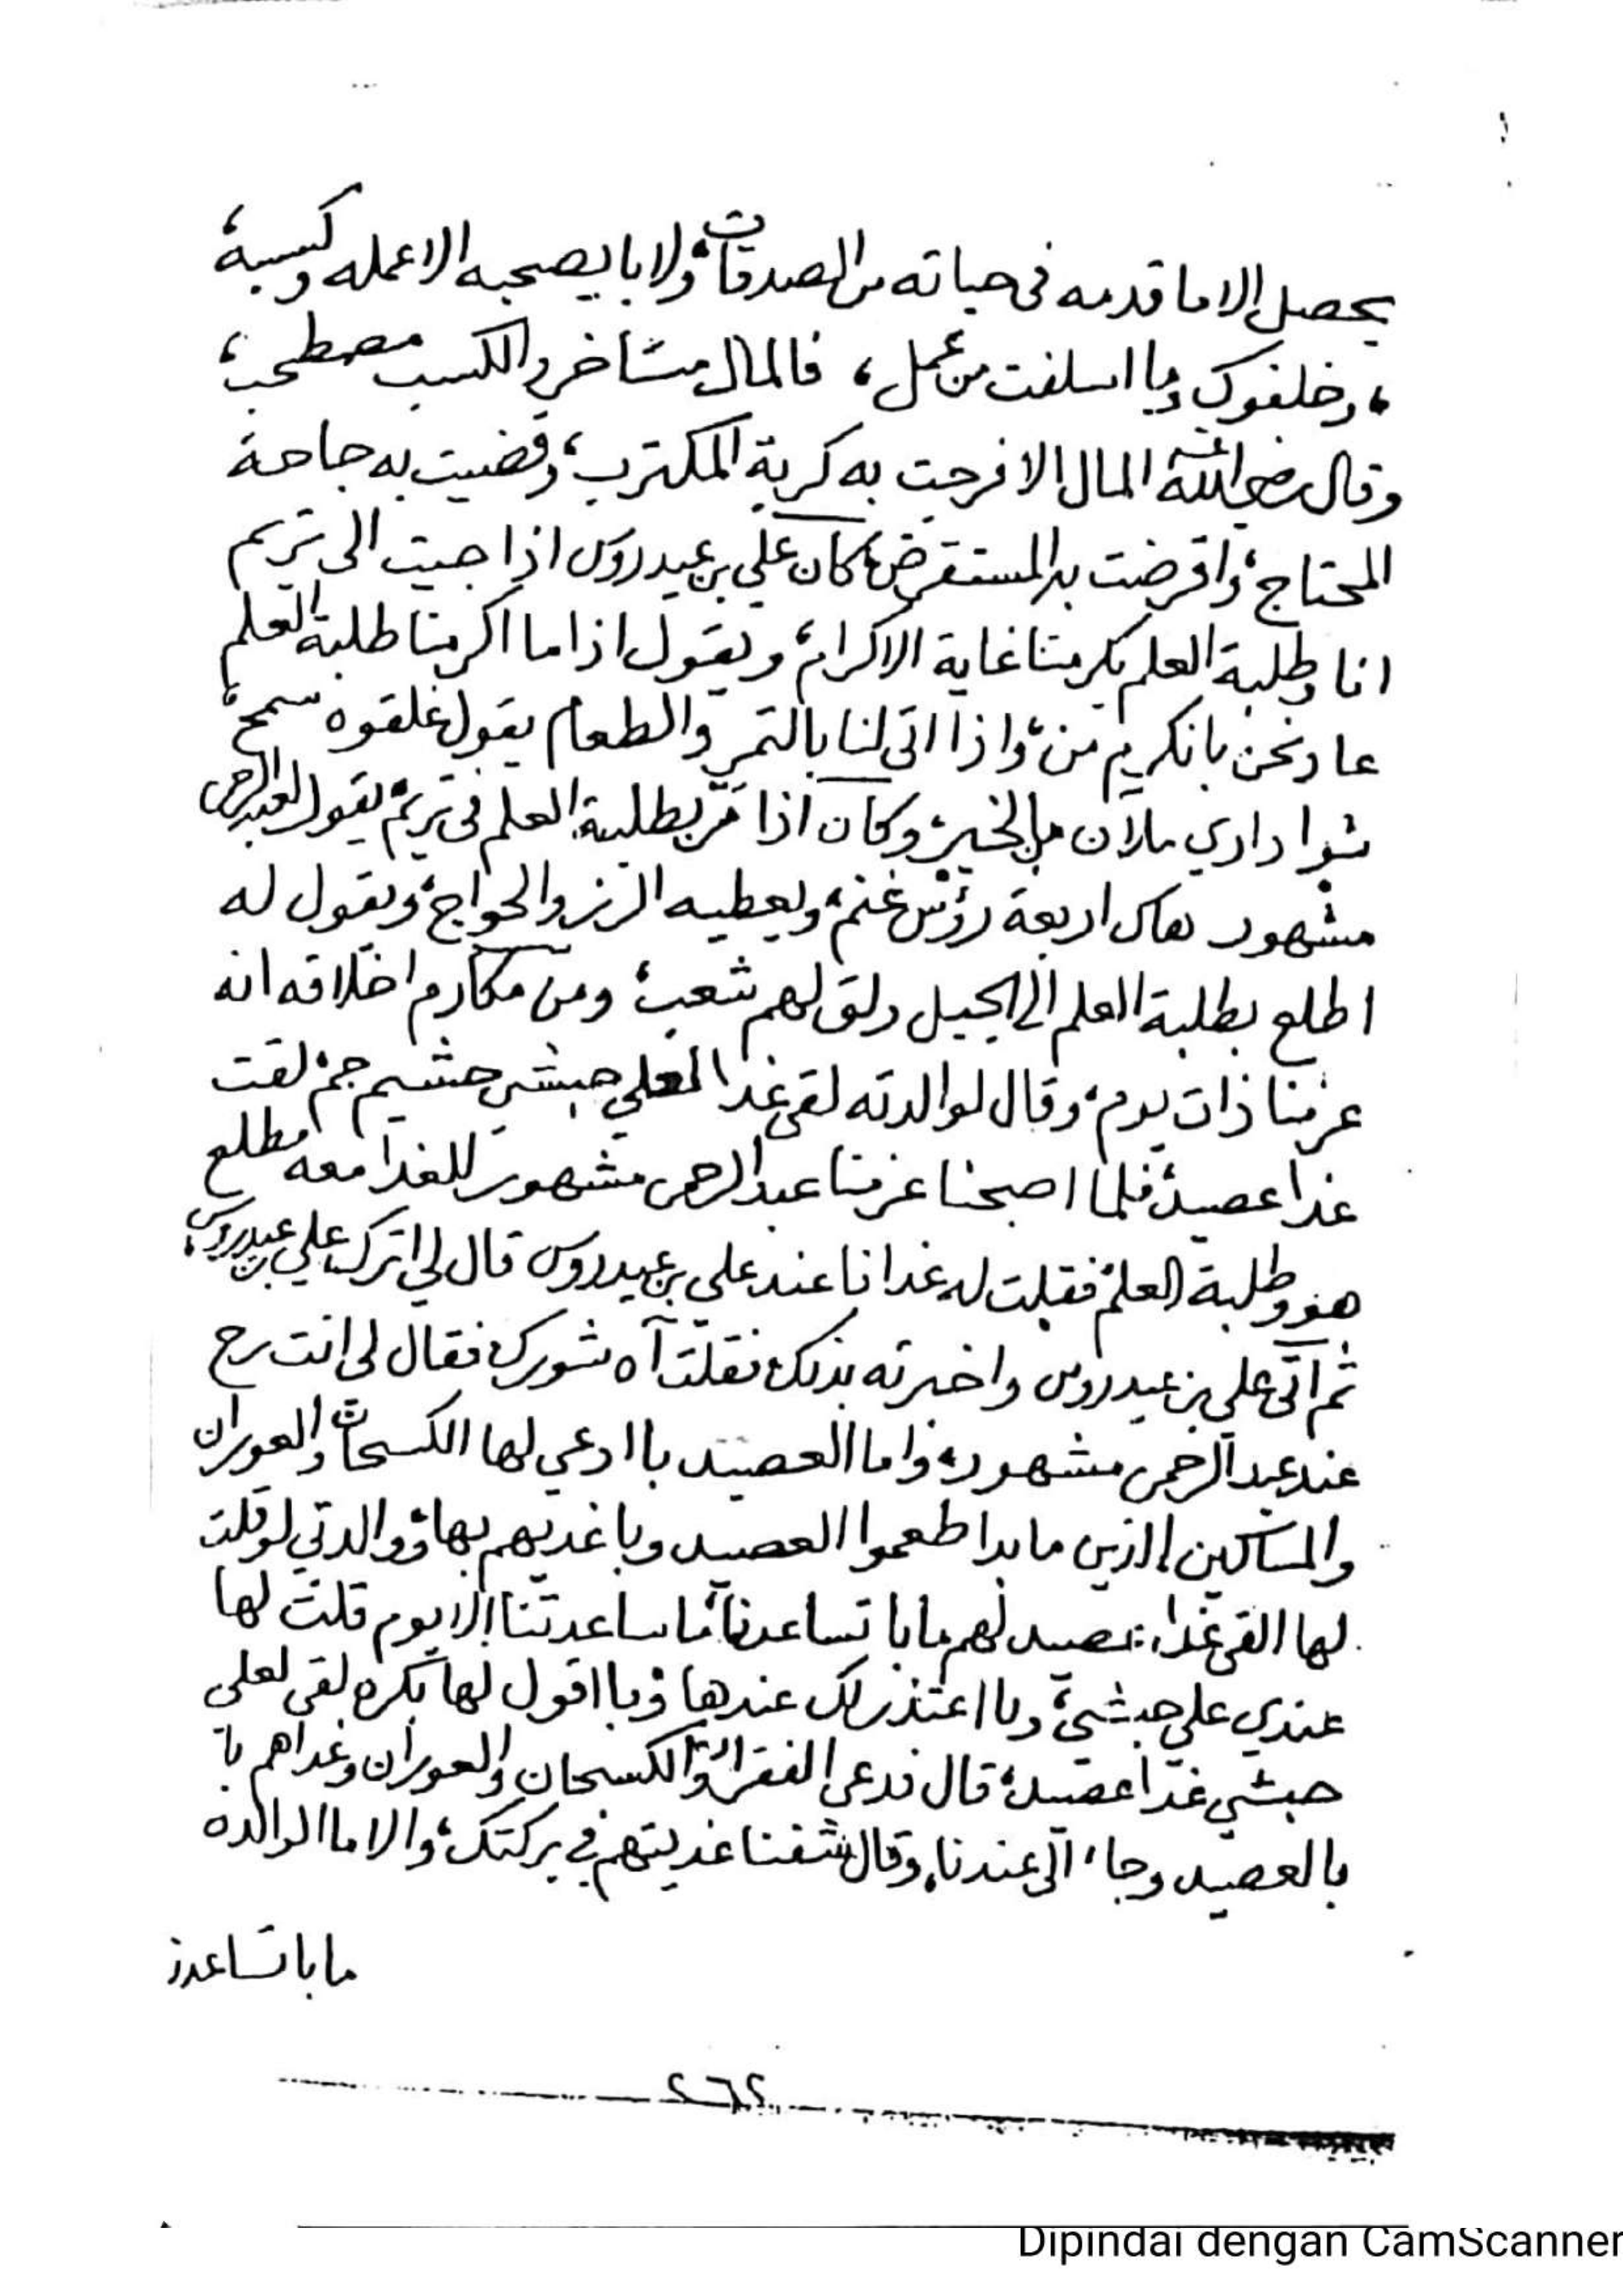 يحصل الا ما قدمه في حياته من الصدقات، ولا با يصحبه الا عمله وكسبه،
، وخلفوك وما اسلفت من عمل، فالمال متأخر والكسب مصطحب،
وقال رضي الله عنه المال الا فرجت به كربة المكترب، وقضيت به حاجة
المحتاج، واقرضت به المستقرض، كان علي بن عيدروس اذا جيت الى تريم
انا وطلبة العلم يكرمنا غاية الاكرام، ويقول اذا ما اكرمنا طلبة العلم
عاد نحن بانكرم من، واذا اتى لنا بالتمر والطعام يقول غلقوه سمح،
شوا داري ملآن من الخير، وكان اذا مر بطلبة العلم في تريم يقول لعبد الرحمن
مشهور هاك اربعة رؤس غنم، ويعطيه الرز والحواج، ويقول له
اطلع بطلبة العلم الى الجبل ولق لهم شعب، ومن مكارم اخلاقه انه
عزمنا ذات يوم، وقال لوالدته لقي غدا لعلي حبشي حشيم جم، لقت
غدا عصيد، فلما اصبحنا عزمنا عبد الرحمن مشهور للغدا معه مطلع
هو وطلبة العلم، فقلت له غدانا عند علي بن عيدروس قال لي اترك علي بن عيدروس،
ثم اتى علي بن عيدروس واخبرته بذلك فقلت آه شورك فقال لي انت رح
عند عبد الرحمن مشهور، واما العصيد با ادعي لها الكسحان والعوران
والمساكين الذين ما بدا طعموا العصيد وباغديهم بها، ووالدتي لو قلت
لها القي غدا عصيد لهم ما با تساعدنا، ما ساعدتنا الا يوم قلت لها
عندي علي حبشي، وبا اعتذر لك عندها، وبا اقول لها بكره لقي لعلي
حبشي غدا عصيد، قال فدعى الفقراء والكسحان والعوران وغداهم با
بالعصيد وجاء الى عندنا، وقال شفنا غديتهم في بركتك، والا اما الوالده
ما با تساعدنا
٢٦٢
Dipindai dengan CamScanner